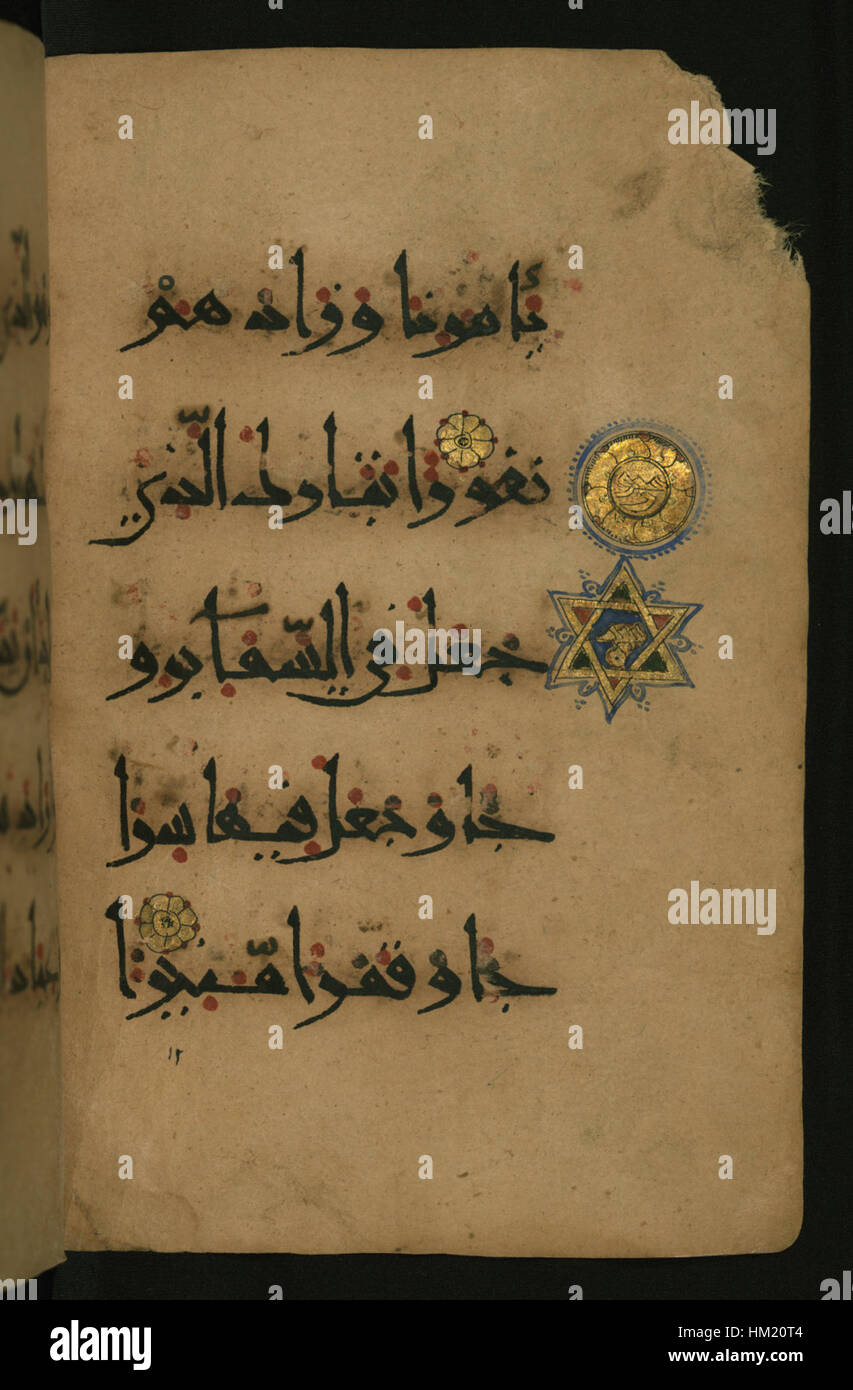 تَأْمُرُنَا وَزَادَهُمْ
نُفُورًا تَبَارَكَ الَّذِي
جَعَلَ فِي السَّمَاءِ بُرُو
جًا وَجَعَلَ فِيهَا سِرَا
جًا وَقَمَرًا مُّنِيرًا
١٢
alamy stock photo
HM20T4
www.alamy.com